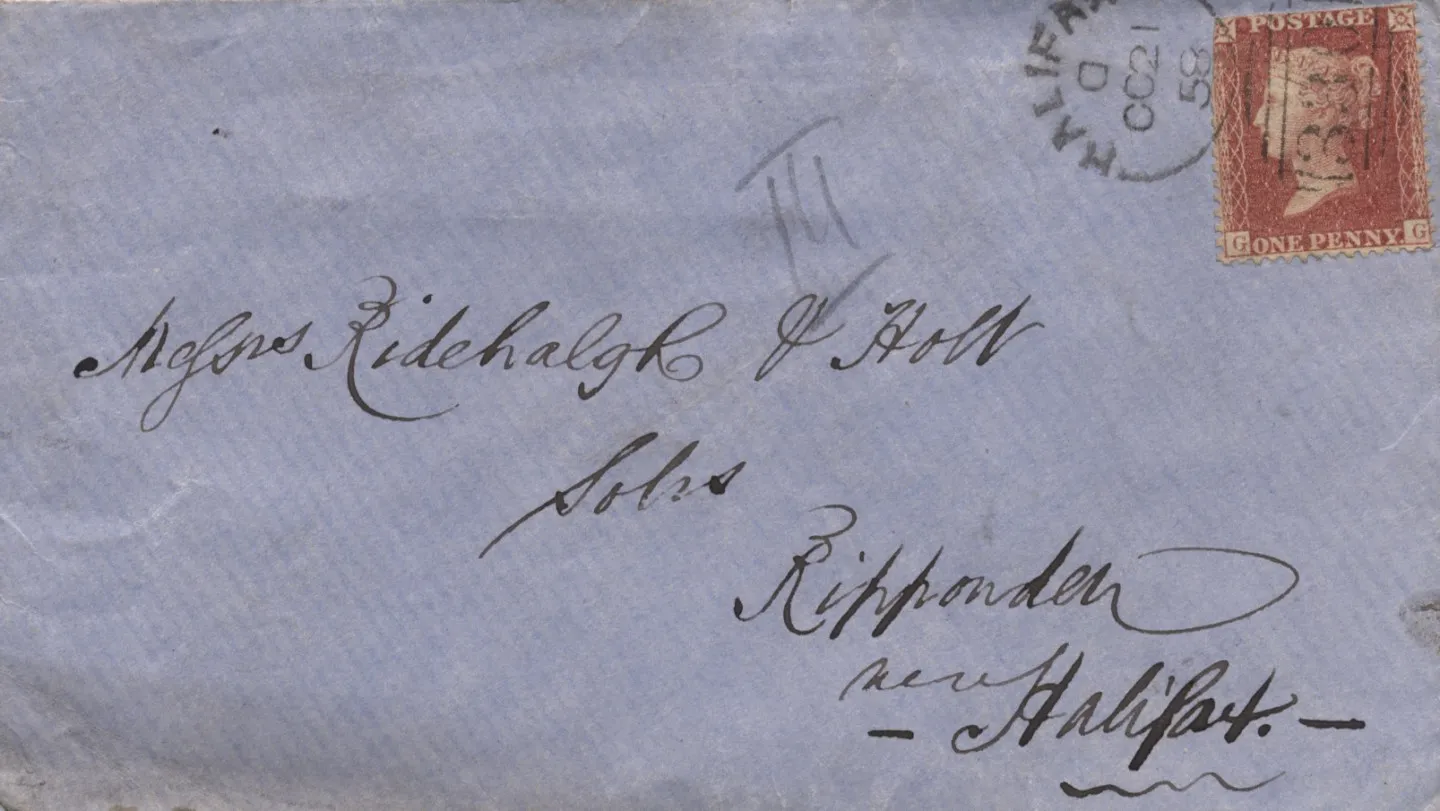 HALIFAX
D
OC21
58
POSTAGE
G ONE PENNY. G
III
Messrs Ridehalgh & Holt
Solrs
Ripponden
near
Halifax.